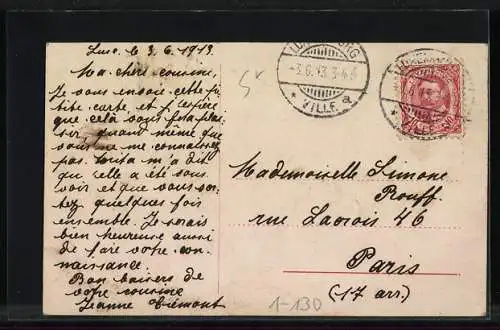 Lux. le 3.6.1913.
Ma chère cousine,
Je vous envoie cette pe-
tite carte, et j'espère
que celà vous fera plai-
sir, quand même que
vous ne me connaissez
pas. m'a dit
qu'elle a été vous
voir et que vous sor-
tez quelques fois
ensemble. Je serais
bien heureuse aussi
de faire votre con-
naissance.
Bon baisers de
votre cousine
Jeanne Clémont
LUXEMBOURG
-3.6.13.3-4 S
* VILLE a
LUXEMBOURG
VILLE
Mademoiselle Simone
Rouff.
rue Lacrois 46
Paris
(17 arr.)
1-130